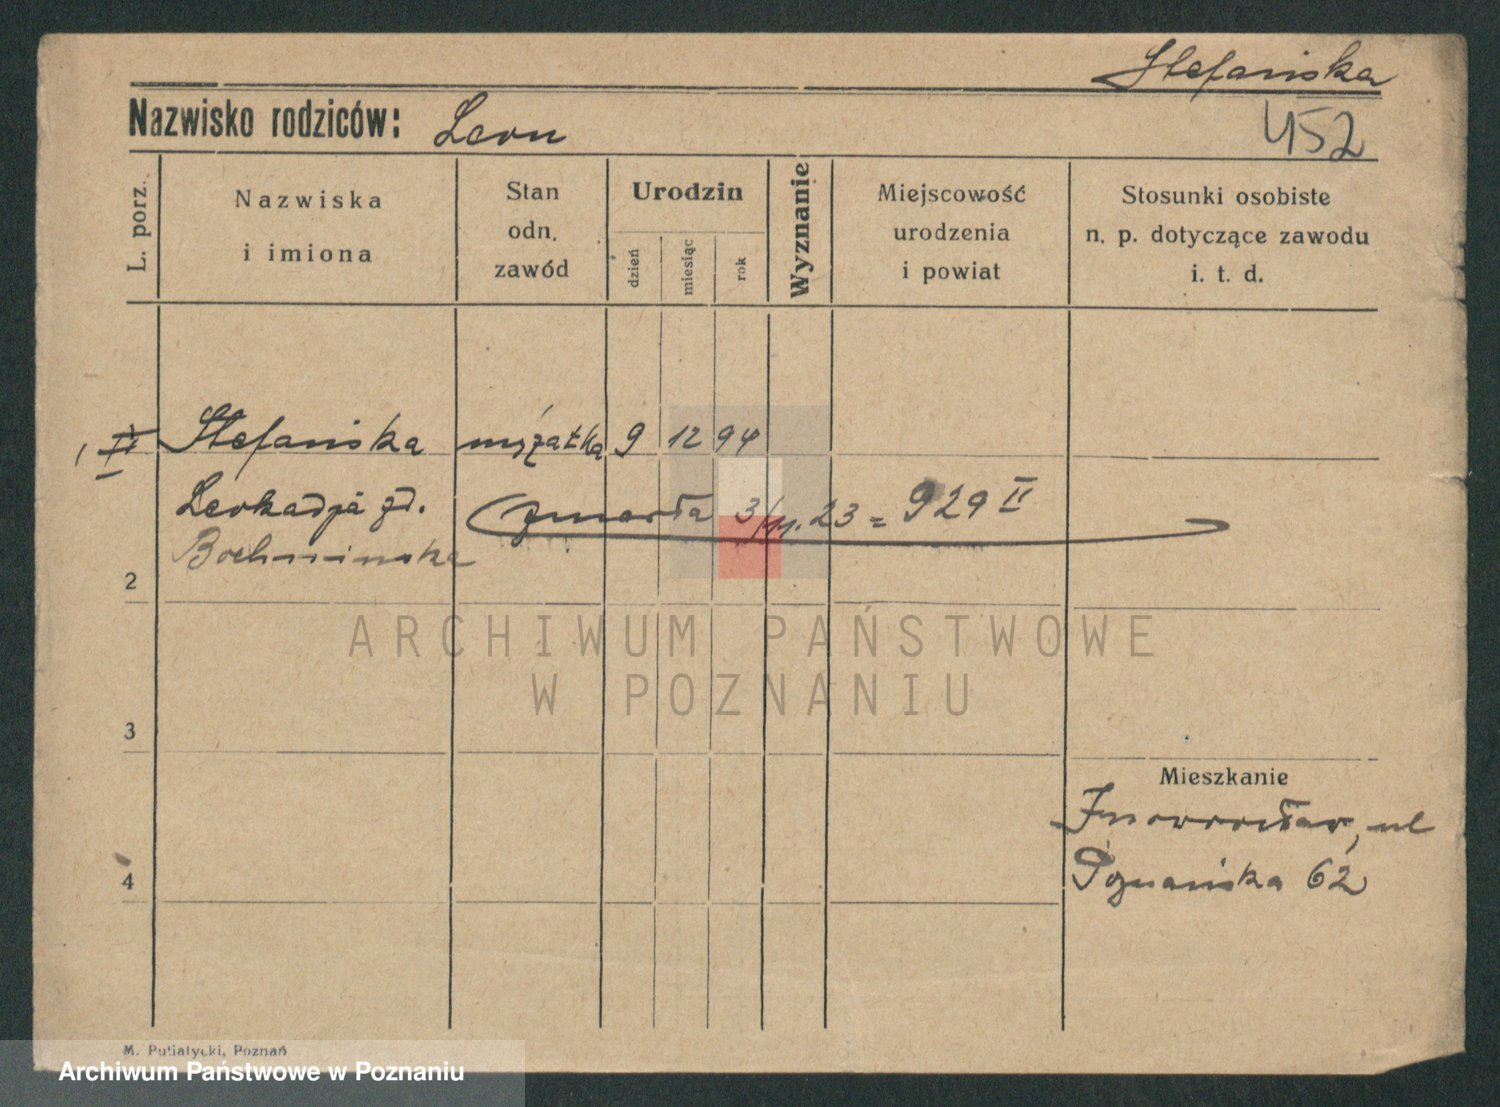 Stefańska
Nazwisko rodziców: Leon
452
L. porz.
Nazwiska
i imiona
Stan
odn.
zawód
Urodzin
dzień
miesiąc
rok
Wyznanie
Miejscowość
urodzenia
i powiat
Stosunki osobiste
n. p. dotyczące zawodu
i. t. d.
Stefańska mężatka 9 12 94
Leokadja zd.
zmarła 3/11. 23 = 929 II
Bochnińska
2
3
4
Mieszkanie
Inowrocław, ul
Poznańska 62
ARCHIWUM PAŃSTWOWE
W POZNANIU
M. Putiatycki, Poznań
Archiwum Państwowe w Poznaniu